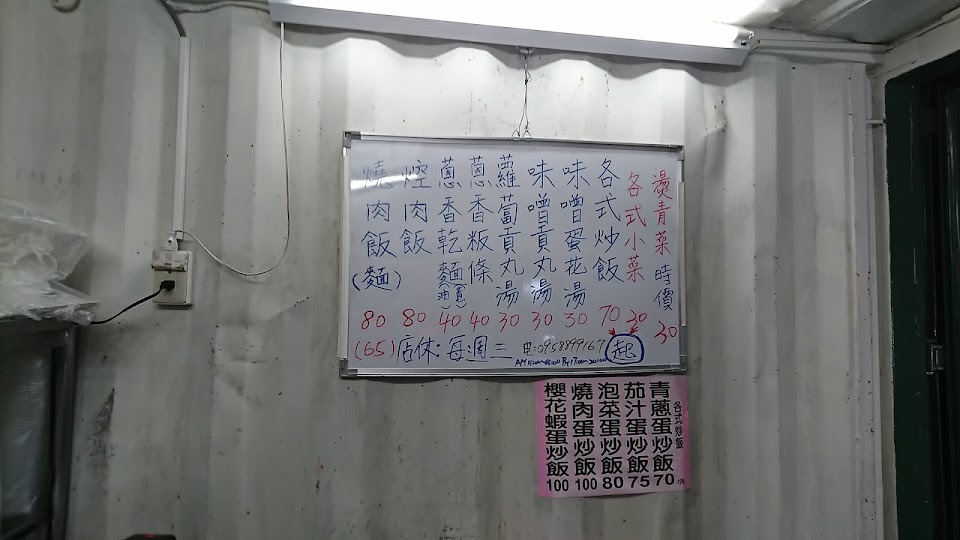 燒肉飯(麵) 80 (65)
焢肉飯 80
蔥香乾麵(意油) 40
蔥香粄條 40
蘿蔔貢丸湯 30
味噌貢丸湯 30
味噌蛋花湯 30
各式炒飯 70
各式小菜 30
起
燙青菜時價 30
店休:每週三
電:0958899167
各式炒飯
青蔥蛋炒飯 70
茄汁蛋炒飯 75
泡菜蛋炒飯 80
燒肉蛋炒飯 100
櫻花蝦蛋炒飯 100